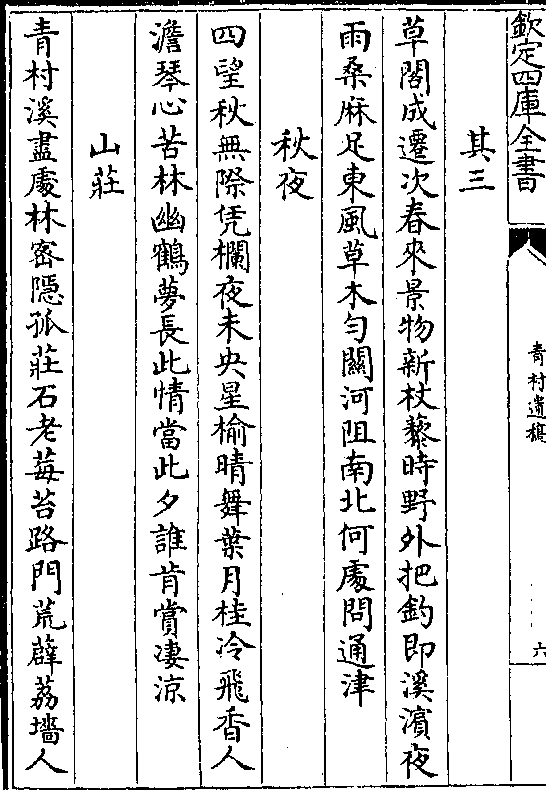 欽定四庫全書
青村遺稿
六
其三
草閣成遷次春來景物新杖藜時野外把釣即溪濱夜
雨桑麻足東風草木勻關河阻南北何處問通津
秋夜
四望秋無際凭欄夜未央星榆晴舞葉月桂冷飛香人
澹琴心苦林幽鶴夢長此情當此夕誰肯賞凄涼
山莊
青村溪盡處林密隱孤莊石老莓苔路門荒薜荔墻人